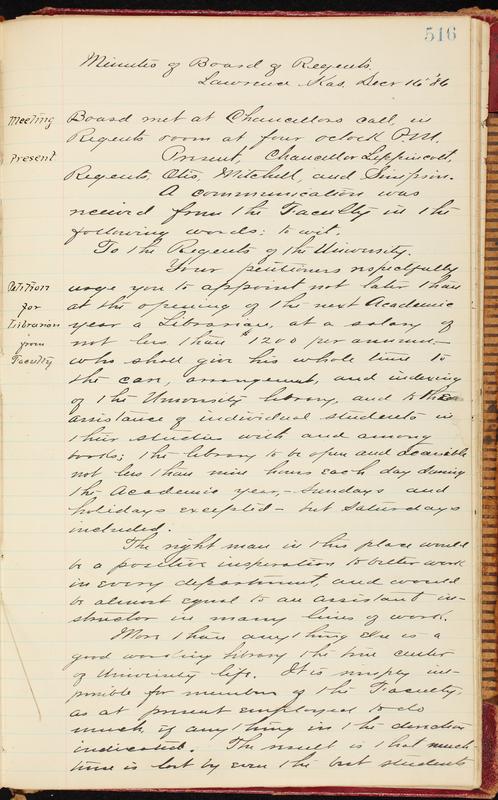 516
Minutes of Board of Regents.
Lawrence Kas. Decr 16 '86
Meeting
Board met at Chancellors call, in
Regents room at four oclock P.M.
Present
Present, Chancellor Lippincott,
Regents, Otis, Mitchell, and Simpson.
A communication was
received from the Faculty in the
following words: to wit.
To the Regents of the University.
Your petitioners respectfully
Petition
for
Librarian
from
Faculty
urge you to appoint not later than
at the opening of the next Academic
year a Librarian, at a salary of
not less than $1200 per annum—
who shall give his whole time to
the care, arrangement, and indexing
of the University library, and to the
assistance of individual students in
their studies with and among
books; the library to be open and accessible
not less than nine hours each day during
the Academic year,- Sundays and
holidays excepted - but Saturdays
included.
The right man in this place would
be a positive inspiration to better work
in every department, and would
be almost equal to an assistant in-
structor in many lines of work.
More than any thing else is a
good working library the true center
of University life. It is simply im-
possible for members of the Faculty,
as at present employed to do
much if any thing in the direction
indicated. The result is that much
time is lost by even the best students